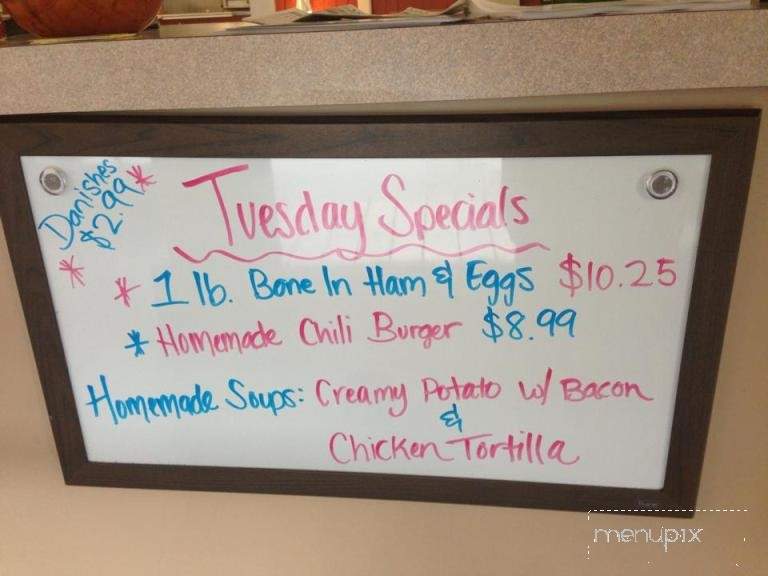 Danishes
$2.99
Tuesday Specials
* 1 lb. Bone In Ham & Eggs $10.25
* Homemade Chili Burger $8.99
Homemade Soups: Creamy Potato w/ Bacon
&
Chicken Tortilla
menupix